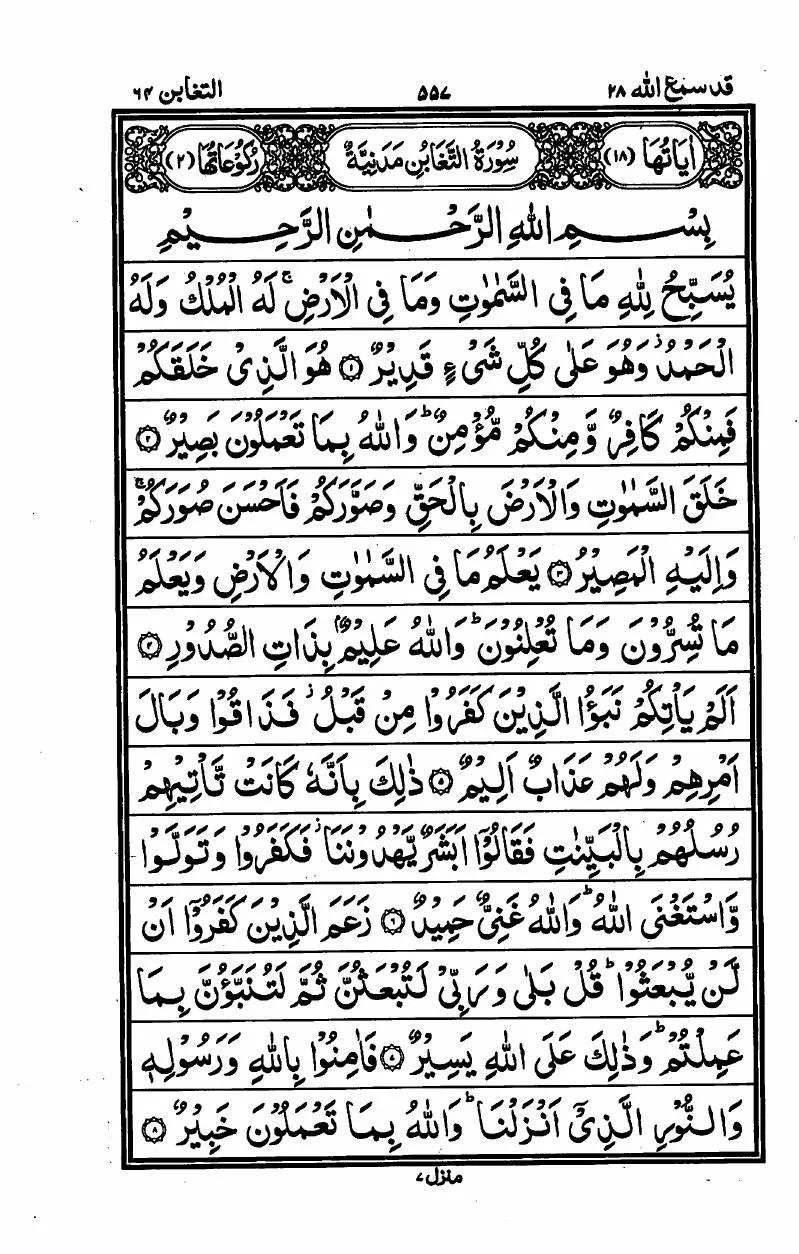 قد سمع الله ۲۸
۵۵۷
التغابن ۶۴
اٰیَاتُهَا (۱۸)
سُوْرَةُ التَّغَابُنِ مَدَنِیَّةٌ
رُكُوْعَاتُهَا (۲)
بِسْمِ اللّٰهِ الرَّحْمٰنِ الرَّحِیْمِ
یُسَبِّحُ لِلّٰهِ مَا فِی السَّمٰوٰتِ وَمَا فِی الْاَرْضِ ۚ لَهُ الْمُلْكُ وَلَهُ
الْحَمْدُ ؗ وَهُوَ عَلٰی كُلِّ شَیْءٍ قَدِیْرٌ ۝۱ هُوَ الَّذِیْ خَلَقَكُمْ
فَمِنْكُمْ كَافِرٌ وَّمِنْكُمْ مُّؤْمِنٌ ؕ وَاللّٰهُ بِمَا تَعْمَلُوْنَ بَصِیْرٌ ۝۲
خَلَقَ السَّمٰوٰتِ وَالْاَرْضَ بِالْحَقِّ وَصَوَّرَكُمْ فَاَحْسَنَ صُوَرَكُمْ ۚ
وَاِلَیْهِ الْمَصِیْرُ ۝۳ یَعْلَمُ مَا فِی السَّمٰوٰتِ وَالْاَرْضِ وَیَعْلَمُ
مَا تُسِرُّوْنَ وَمَا تُعْلِنُوْنَ ؕ وَاللّٰهُ عَلِیْمٌۢ بِذَاتِ الصُّدُوْرِ ۝۴
اَلَمْ یَاْتِكُمْ نَبَؤُا الَّذِیْنَ كَفَرُوْا مِنْ قَبْلُ ؗ فَذَاقُوْا وَبَالَ
اَمْرِهِمْ وَلَهُمْ عَذَابٌ اَلِیْمٌ ۝۵ ذٰلِكَ بِاَنَّهٗ كَانَتْ تَّاْتِیْهِمْ
رُسُلُهُمْ بِالْبَیِّنٰتِ فَقَالُوْۤا اَبَشَرٌ یَّهْدُوْنَنَا ؗ فَكَفَرُوْا وَتَوَلَّوْا
وَّاسْتَغْنَی اللّٰهُ ؕ وَاللّٰهُ غَنِیٌّ حَمِیْدٌ ۝۶ زَعَمَ الَّذِیْنَ كَفَرُوْۤا اَنْ
لَّنْ یُّبْعَثُوْا ؕ قُلْ بَلٰی وَرَبِّیْ لَتُبْعَثُنَّ ثُمَّ لَتُنَبَّؤُنَّ بِمَا
عَمِلْتُمْ ؕ وَذٰلِكَ عَلَی اللّٰهِ یَسِیْرٌ ۝۷ فَاٰمِنُوْا بِاللّٰهِ وَرَسُوْلِهٖ
وَالنُّوْرِ الَّذِیْۤ اَنْزَلْنَا ؕ وَاللّٰهُ بِمَا تَعْمَلُوْنَ خَبِیْرٌ ۝۸
منزل ۷